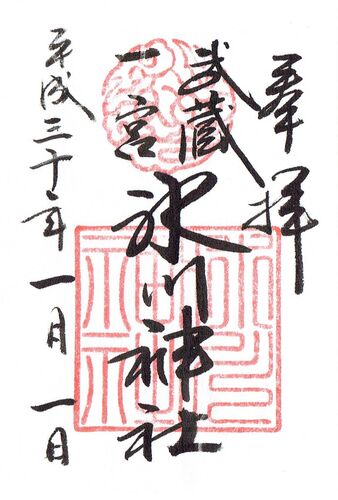 奉拝
武蔵
一宮
氷川神社
平成三十年一月一日
氷川神社